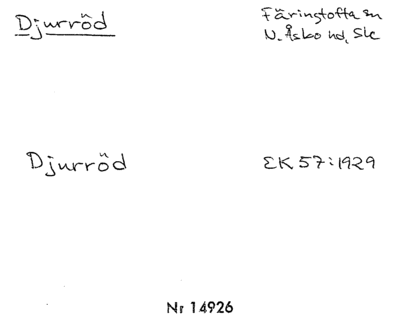 Djurröd
Färingtofta sn
N. Åsbo hd, Ske
Djurröd
EK 57:1929
Nr 14926